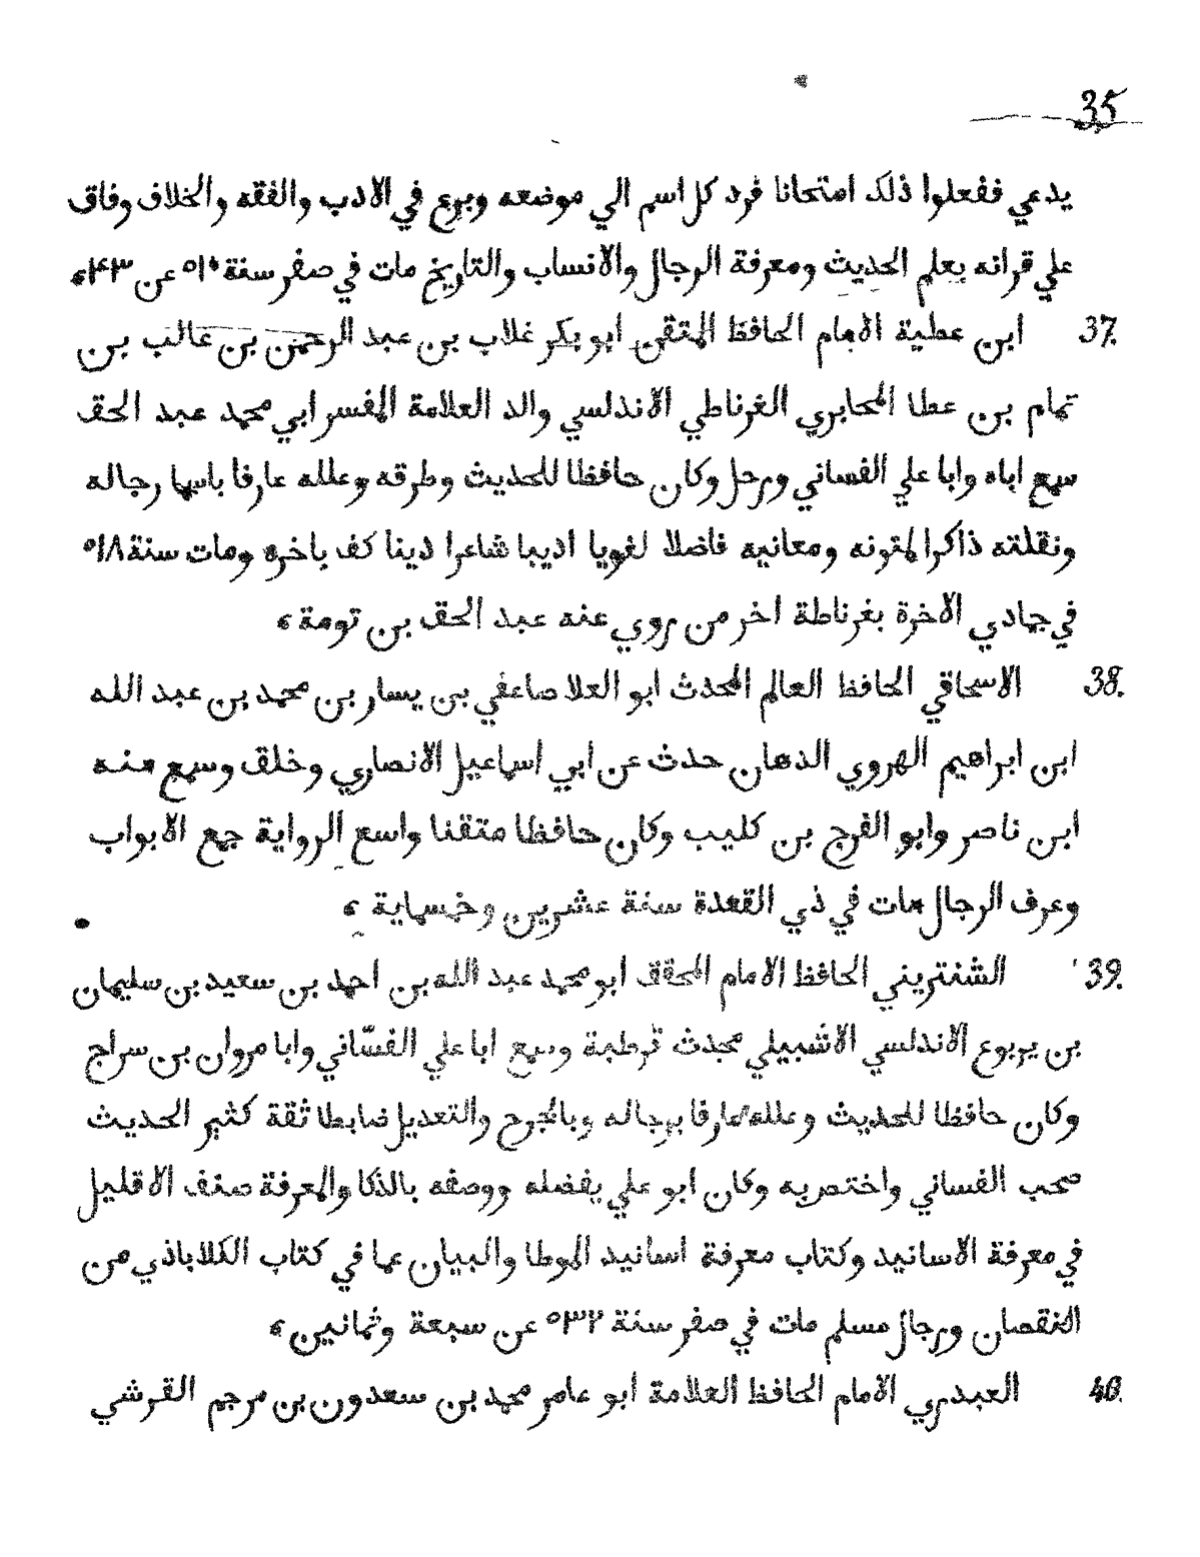 35
يدعي ففعلوا ذلك امتحانا فرد كل اسم الي موضعه وبرع في الادب والفقه والخلاف وفاق
علي قرانه بعلم الحديث ومعرفة الرجال والانساب والتاريخ مات في صفر سنة ٥١٠ عن ٤٣ ه
37. ابن عطية الامام الحافظ المتقن ابو بكر غلاب بن عبد الرحمن بن غالب بن
تمام بن عطا المحابري الغرناطي الاندلسي والد العلامة المفسر ابي محمد عبد الحق
سمع اباه وابا علي الفساني ورحل وكان حافظا للحديث وطرقه وعلله عارفا باسما رجاله
ونقلته ذاكرا لمتونه ومعانيه فاضلا لغويا اديبا شاعرا دينا كف باخره ومات سنة ٥١٨
في جمادي الاخرة بغرناطة اخر من روي عنه عبد الحق بن تومة ه
38. الاسحاقي الحافظ العالم المحدث ابو العلا صاعفي بن يسار بن محمد بن عبد الله
ابن ابراهيم الهروي الدهان حدث عن ابي اسماعيل الانصاري وخلق وسمع منه
ابن ناصر وابو الفرج بن كليب وكان حافظا متقنا واسع الرواية جمع الابواب
وعرف الرجال مات في ذي القعدة سنة عشرين وخمسماية ه
39. الشنتريني الحافظ الامام المحقق ابو محمد عبد الله بن احمد بن سعيد بن سليمان
بن يربوع الاندلسي الاشبيلي محدث قرطبة وسمع ابا علي الفسّاني وابا مروان بن سراج
وكان حافظا للحديث وعلله عارفا برجاله وبالجرح والتعديل ضابطا ثقة كثير الحديث
صحب الفساني واختص به وكان ابو علي يفضله ووصفه بالذكا والمعرفة صنف الاقليل
في معرفة الاسانيد وكتاب معرفة اسانيد الموطا والبيان عما في كتاب الكلاباذي من
النقصان ورجال مسلم مات في صفر سنة ٥٣٢ عن سبعة وثمانين ه
40. العبدري الامام الحافظ العلامة ابو عامر محمد بن سعدون بن مرجم القرشي